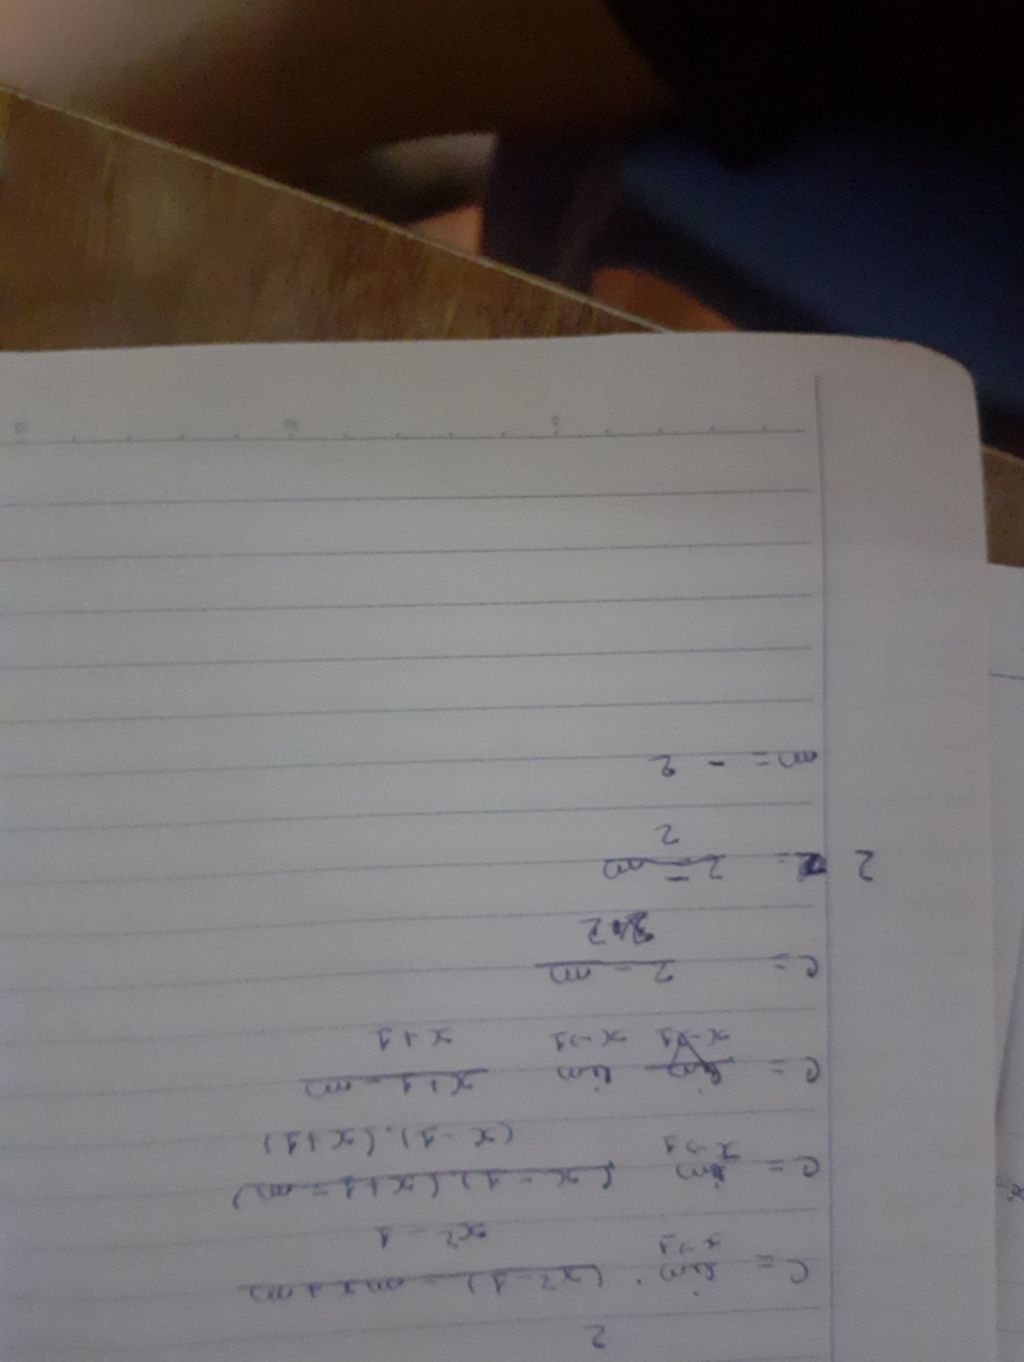 2
C = lim (x² - 1) - mx + m
x→1 x² - 1
C = lim (x - 1) (x + 1 - m)
x→1 (x - 1).(x + 1)
C = lim x + 1 - m
x→1 x→1 x + 1
C = 2 - m
2
2 = 2 - m
2
m = - 2